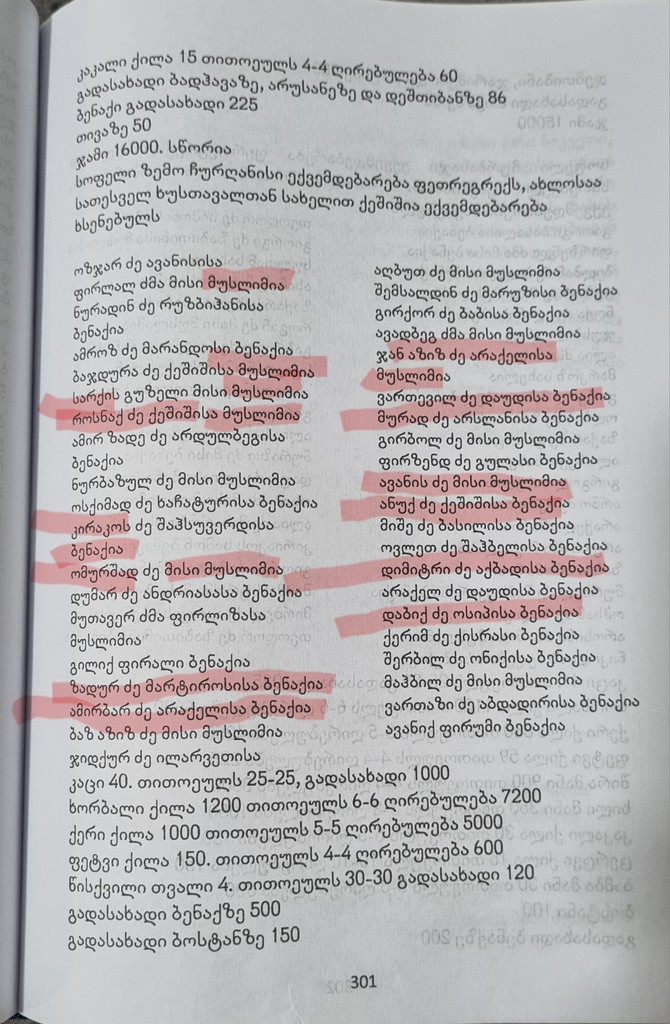 კაკალი ქილა 15 თითოეულს 4-4 ღირებულება 60
გადასახადი ბადჰავაზე, არუსანეზე და დეშთიბანზე 86
ბენაქი გადასახადი 225
თივაზე 50
ჯამი 16000. სწორია
სოფელი ზემო ჩურღანისი ექვემდებარება ფეთრეგრექს, ახლოსაა
სათესველ ხუსთავალთან სახელით ქეშიშია ექვემდებარება
ხსენებულს
ოზჯარ ძე ავანისისა
ფირლალ ძმა მისი მუსლიმია
ნურადინ ძე რუზბიჰანისა
ბენაქია
ამროზ ძე მარანდოსი ბენაქია
ბაჯდურა ძე ქეშიშისა მუსლიმია
სარქის გუზელი მისი მუსლიმია
როსნაქ ძე ქეშიშისა მუსლიმია
ამირ ზადე ძე არდულბეგისა
ბენაქია
ნურბაზულ ძე მისი მუსლიმია
ოსქიმად ძე ხაჩატურისა ბენაქია
კირაკოს ძე შაჰსუვერდისა
ბენაქია
ომურშად ძე მისი მუსლიმია
დუმარ ძე ანდრიასასა ბენაქია
მუთავერ ძმა ფირლიზასა
მუსლიმია
გილიქ ფირალი ბენაქია
ზადურ ძე მარტიროსისა ბენაქია
ამირბარ ძე არაქელისა ბენაქია
ბაზ აზიზ ძე მისი მუსლიმია
ჯიდქურ ძე ილარვეთისა
აღბუთ ძე მისი მუსლიმია
შემსალდინ ძე მარუზისი ბენაქია
გირქორ ძე ბაბისა ბენაქია
ავადბეგ ძმა მისი მუსლიმია
ჯან აზიზ ძე არაქელისა
მუსლიმია
ვართევილ ძე დაუდისა ბენაქია
მურად ძე არსლანისა ბენაქია
გირბოლ ძე მისი მუსლიმია
ფირზენდ ძე გულასი ბენაქია
ავანის ძე მისი მუსლიმია
ანუქ ძე ქეშიშისა ბენაქია
მიშე ძე ბასილისა ბენაქია
ოვლეთ ძე შაჰბელისა ბენაქია
დიმიტრი ძე აქბადისა ბენაქია
არაქელ ძე დაუდისა ბენაქია
დაბიქ ძე ოსიპისა ბენაქია
ქერიმ ძე ქისრასი ბენაქია
შერბილ ძე ონიქისა ბენაქია
მაჰბილ ძე მისი მუსლიმია
ვართაზი ძე აბდადირისა ბენაქია
ავანიქ ფირუმი ბენაქია
კაცი 40. თითოეულს 25-25, გადასახადი 1000
ხორბალი ქილა 1200 თითოეულს 6-6 ღირებულება 7200
ქერი ქილა 1000 თითოეულს 5-5 ღირებულება 5000
ფეტვი ქილა 150. თითოეულს 4-4 ღირებულება 600
წისქვილი თვალი 4. თითოეულს 30-30 გადასახადი 120
გადასახადი ბენაქზე 500
გადასახადი ბოსტანზე 150
301